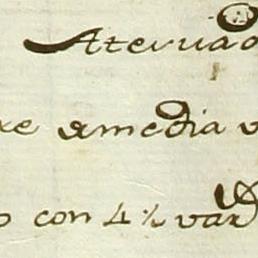 Ateruad
re amedia v
o con 4½ var